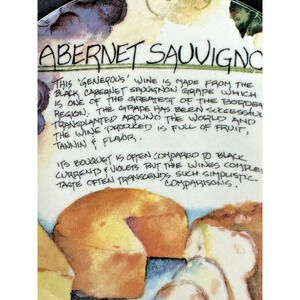 ABERNET SAUVIGNO
THIS 'GENEROUS' WINE IS MADE FROM THE
BLACK CABERNET SAUVIGNON GRAPE WHICH
IS ONE OF THE GREATEST OF THE BORDEA
REGION. THE GRAPE HAS BEEN SUCCESSFUL
TRANSPLANTED AROUND THE WORLD AND
THE WINE PRODUCED IS FULL OF FRUIT,
TANNIN & FLAVOR.
ITS BOUQUET IS OFTEN COMPARED TO BLACK
CURRENTS & VIOLETS BUT THE WINES COMPLE
TASTE OFTEN TRANSCENDS SUCH SIMPLISTIC
COMPARISONS.